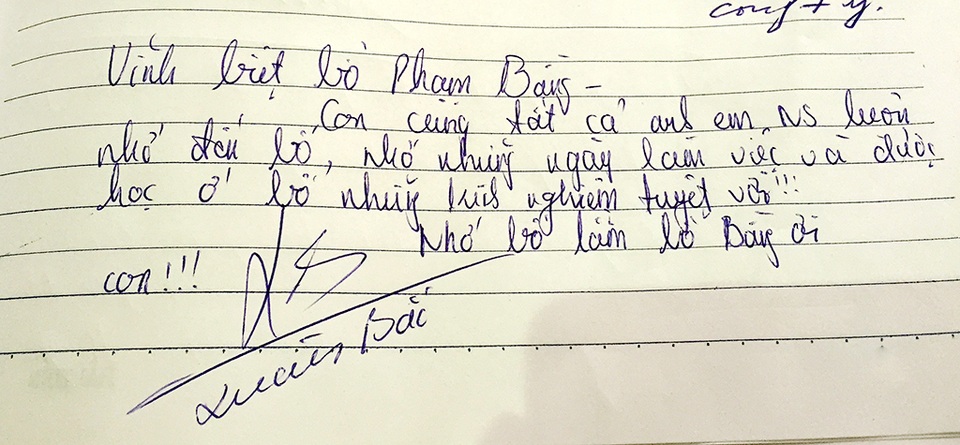 công ty.
Vĩnh biệt bố Phạm Bằng -
Con cùng tất cả anh em NS luôn
nhớ đến bố, nhớ những ngày làm việc và được
học ở bố những kinh nghiệm tuyệt vời!!!
Nhớ bố lắm bố Bằng ơi
con!!!
Xuân Bắc